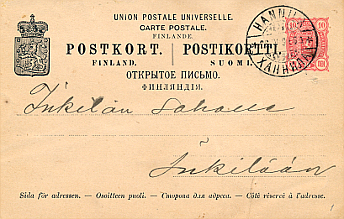 UNION POSTALE UNIVERSELLE.
CARTE POSTALE.
FINLANDE
POSTKORT. POSTIKORTTI.
FINLAND. SUOMI.
ОТКРЫТОЕ ПИСЬМО.
ФИНЛЯНДІЯ.
10 10
HANNI
ХАННИЛА
Inkilän
Inkilään
Sida för adressen. — Osoitteen puoli. — Сторона для адреса. — Côté réservé à l'adresse.